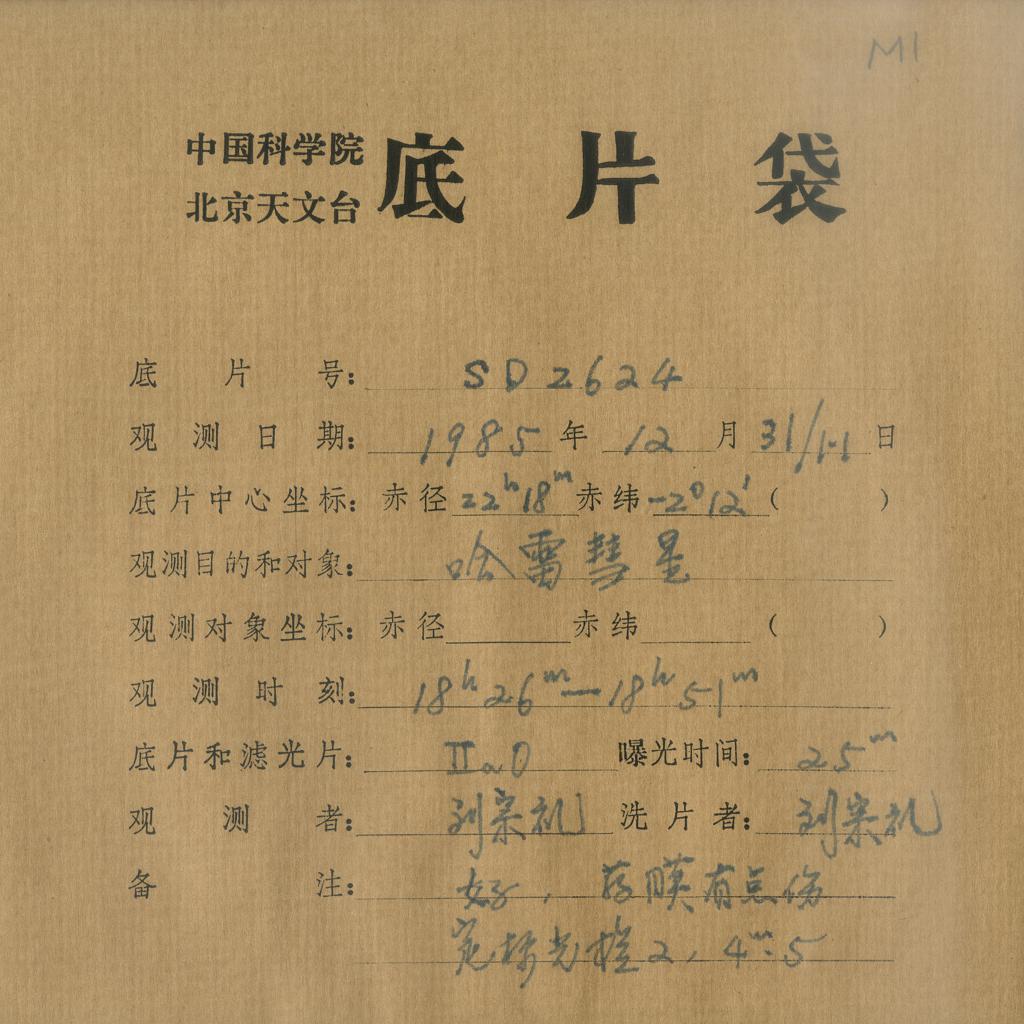 M1
中国科学院
北京天文台 底片袋
底片号: SD2624
观测日期: 1985年12月31/1-1日
底片中心坐标: 赤径22h18m赤纬-2°12'( )
观测目的和对象: 哈雷彗星
观测对象坐标: 赤径 赤纬 ( )
观测时刻: 18h26m—18h51m
底片和滤光片: IIaO 曝光时间: 25m
观测者: 刘宗礼 洗片者: 刘宗礼
备注: 好, 药膜有点伤
定标光楼2, 4m.5